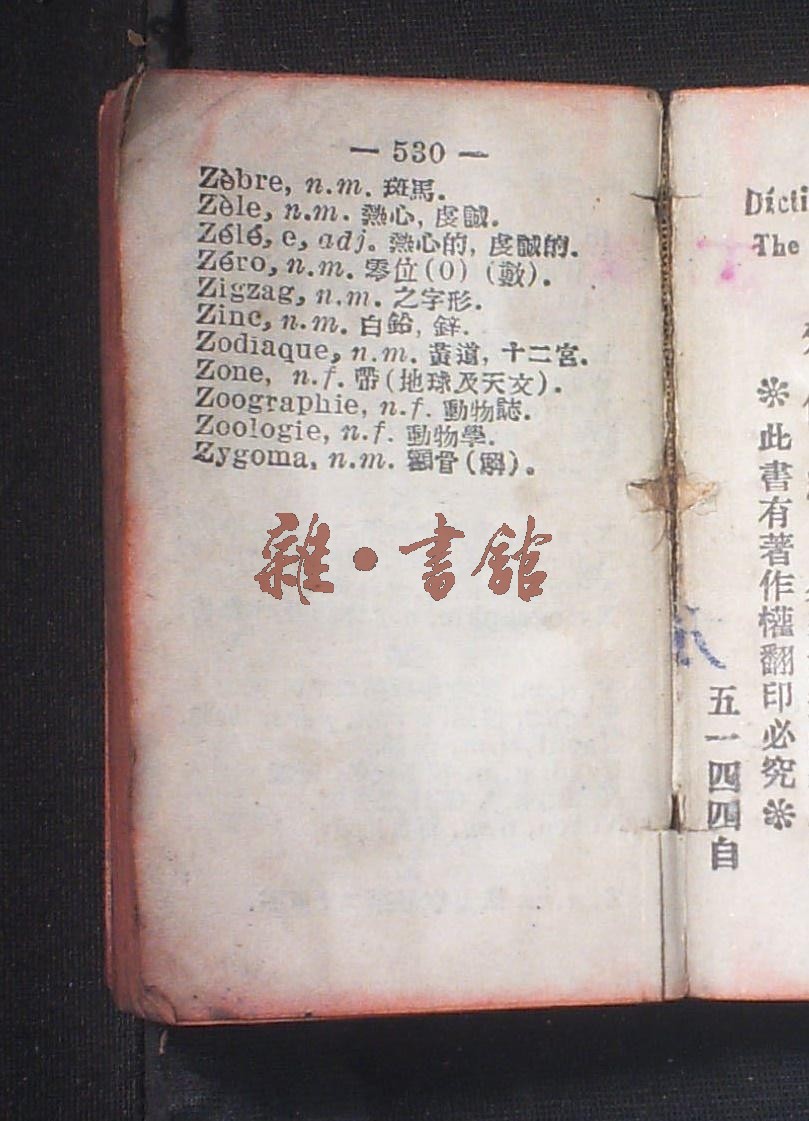 — 530 —
Zèbre, n.m. 斑馬.
Zèle, n.m. 熱心, 虔誠.
Zélé, e, adj. 熱心的, 虔誠的.
Zéro, n.m. 零位(O) (數).
Zigzag, n.m. 之字形.
Zinc, n.m. 白鉛, 鋅.
Zodiaque, n.m. 黃道, 十二宮.
Zone, n.f. 帶(地球及天文).
Zoographie, n.f. 動物誌.
Zoologie, n.f. 動物學.
Zygoma, n.m. 顴骨(解).
雜·書館
Dicti
The
※此書有著作權翻印必究※
五一四四自